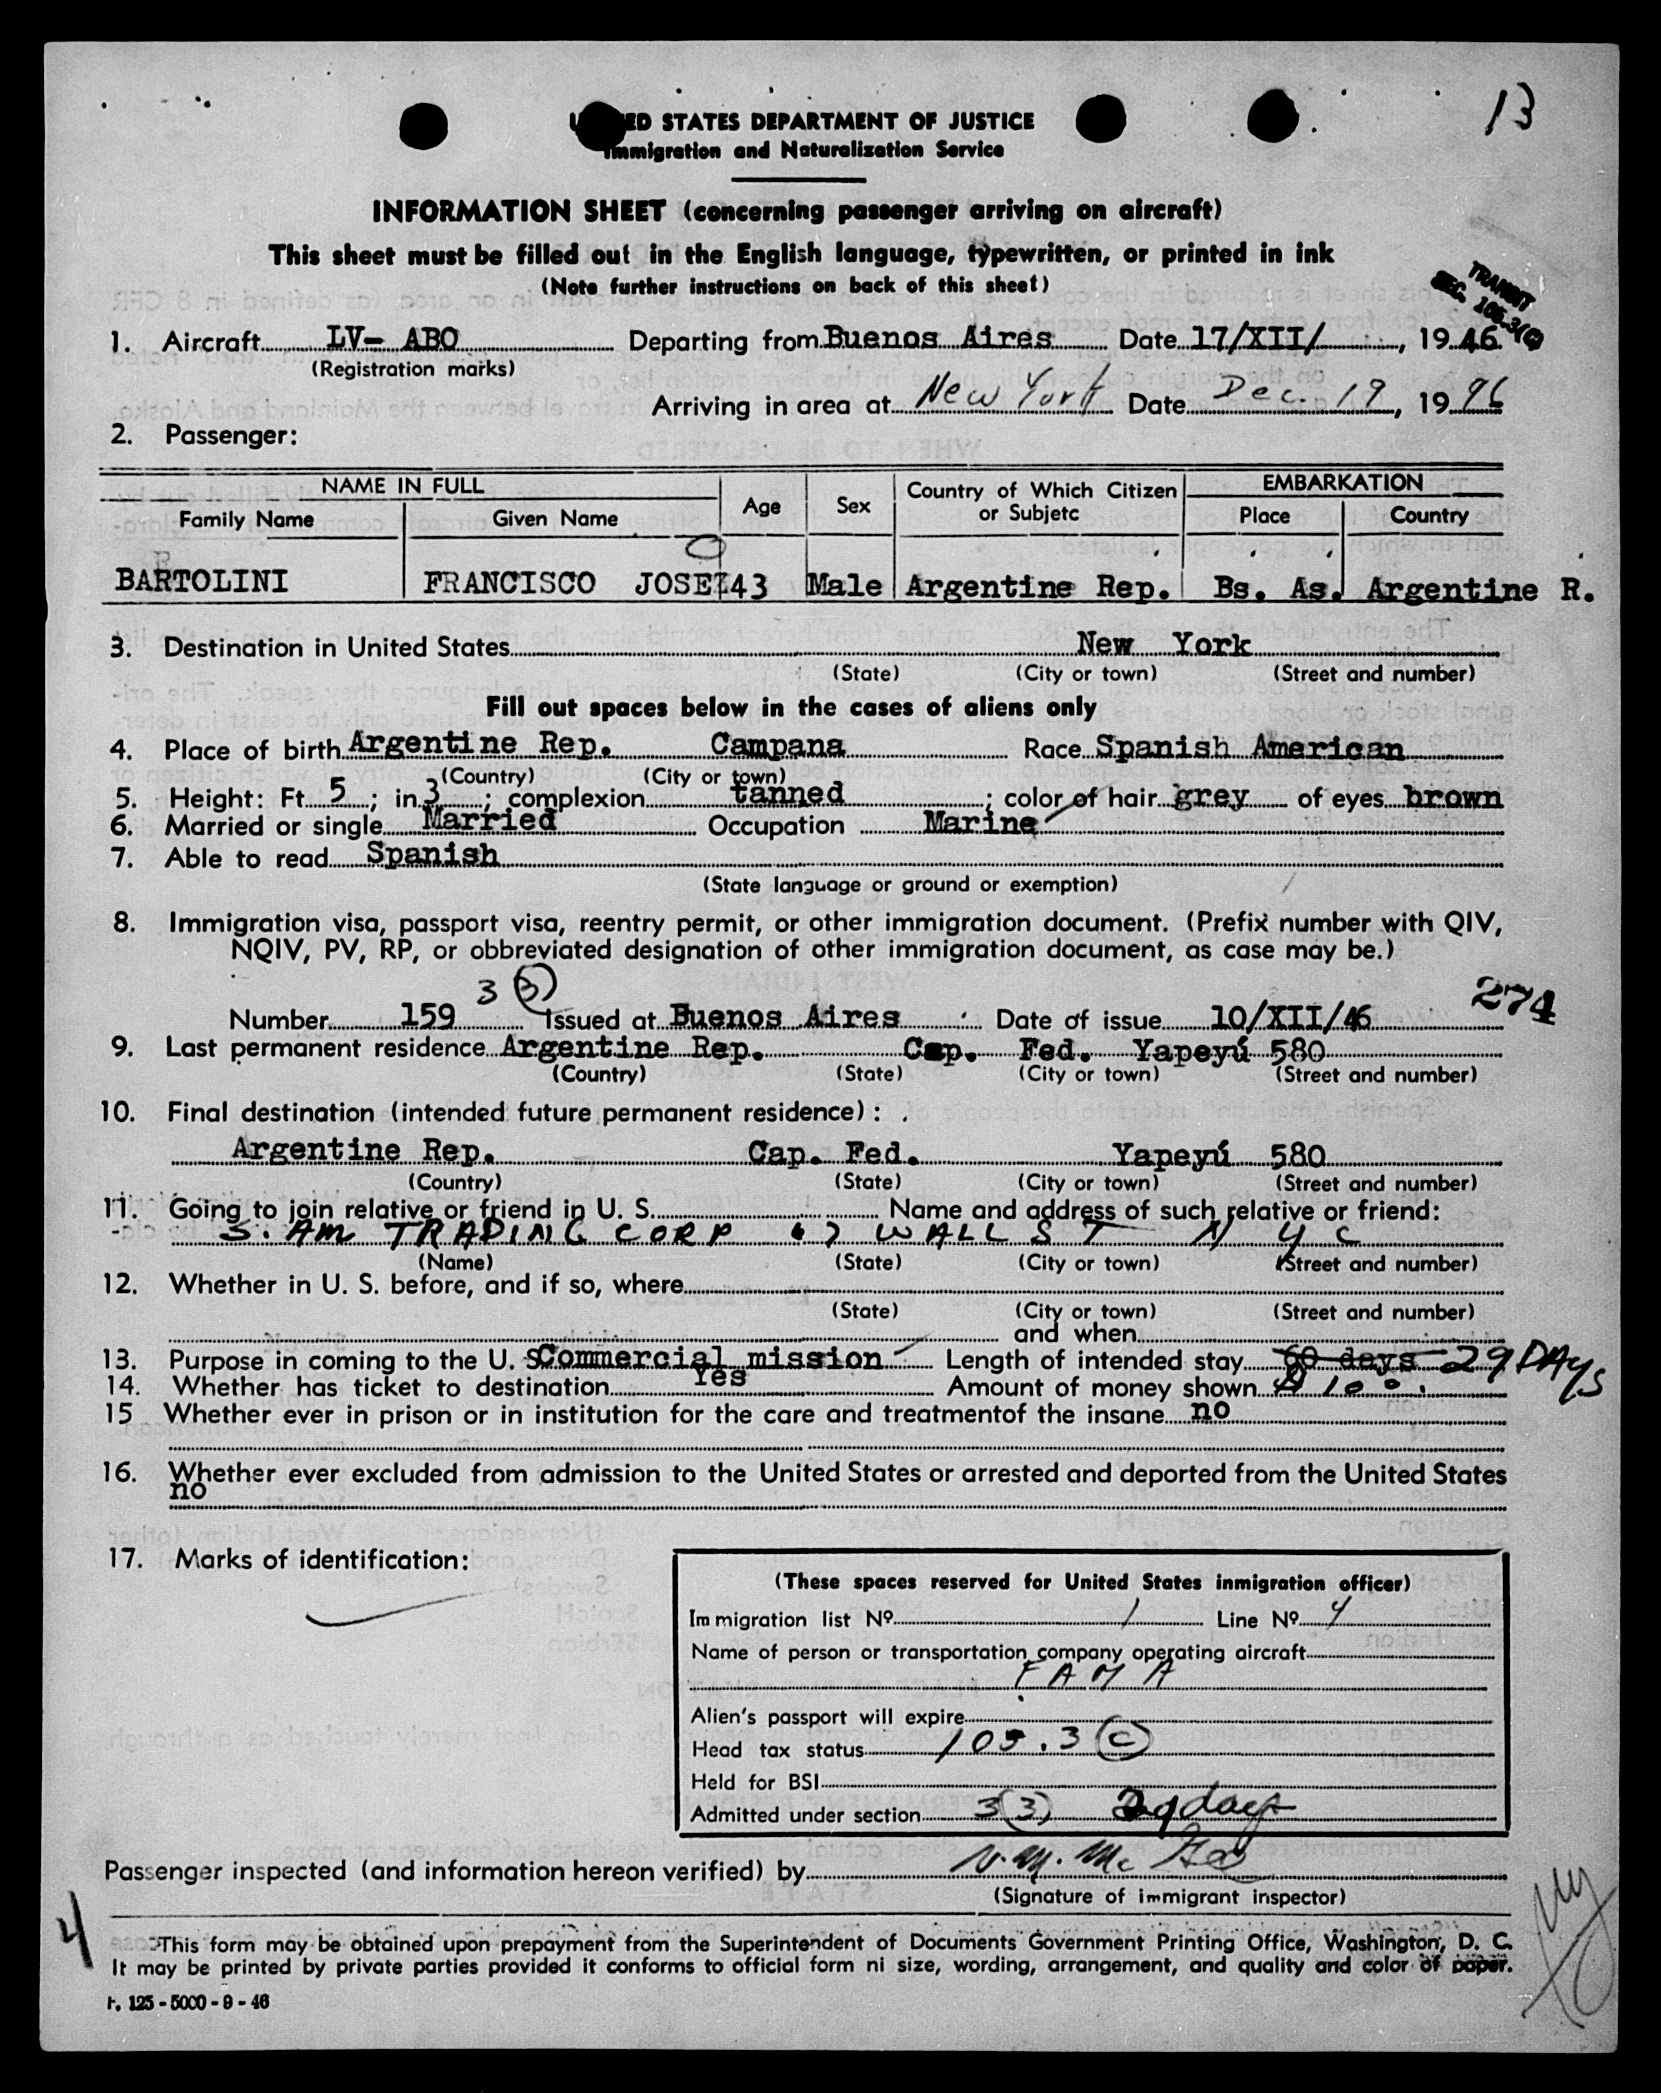 13
UNITED STATES DEPARTMENT OF JUSTICE
Immigration and Naturalization Service
INFORMATION SHEET (concerning passenger arriving on aircraft)
This sheet must be filled out in the English language, typewritten, or printed in ink
(Note further instructions on back of this sheet)
TRANSIT
SEC. 105.3(c)
1. Aircraft LV- ABO Departing from Buenos Aires Date 17/XII/, 1946.
(Registration marks)
Arriving in area at New York Date Dec. 19, 1946
2. Passenger:
NAME IN FULL Age Sex Country of Which Citizen or Subjetc EMBARKATION
Family Name Given Name Place Country
BARTOLINI FRANCISCO JOSE 43 Male Argentine Rep. Bs. As. Argentine R.
3. Destination in United States New York
(State) (City or town) (Street and number)
Fill out spaces below in the cases of aliens only
4. Place of birth Argentine Rep. Campana Race Spanish American
(Country) (City or town)
5. Height: Ft. 5; in. 3; complexion tanned; color of hair grey of eyes brown
6. Married or single Married Occupation Marine
7. Able to read Spanish
(State language or ground or exemption)
8. Immigration visa, passport visa, reentry permit, or other immigration document. (Prefix number with QIV,
NQIV, PV, RP, or obbreviated designation of other immigration document, as case may be.)
3 (3) 274
Number 159 Issued at Buenos Aires Date of issue 10/XII/46
9. Last permanent residence Argentine Rep. Cap. Fed. Yapeyú 580
(Country) (State) (City or town) (Street and number)
10. Final destination (intended future permanent residece):
Argentine Rep. Cap. Fed. Yapeyú 580
(Country) (State) (City or town) (Street and number)
11. Going to join relative or friend in U. S. Name and address of such relative or friend:
S. AM TRADING CORP WALL ST N Y C
(Name) (State) (City or town) (Street and number)
12. Whether in U. S. before, and if so, where
(State) (City or town) (Street and number)
and when
13. Purpose in coming to the U. S. Commercial mission Length of intended stay 60 days 29 DAYS
14. Whether has ticket to destination Yes Amount of money shown $ 100.
15 Whether ever in prison or in institution for the care and treatmentof the insane no
16. Whether ever excluded from admission to the United States or arrested and deported from the United States
no
17. Marks of identification:
(These spaces reserved for United States inmigration officer)
Immigration list Nº 1 Line Nº 4
Name of person or transportation company operating aircraft
FAMA
Alien's passport will expire
Head tax status 105.3 (c)
Held for BSI
Admitted under section 3(3) 29 days
Passenger inspected (and information hereon verified) by
(Signature of immigrant inspector)
4
This form may be obtained upon prepayment from the Superintendent of Documents Government Printing Office, Washington, D. C.
It may be printed by private parties provided it conforms to official form ni size, wording, arrangement, and quality and color of paper.
F. 125 - 5000 - 9 - 46